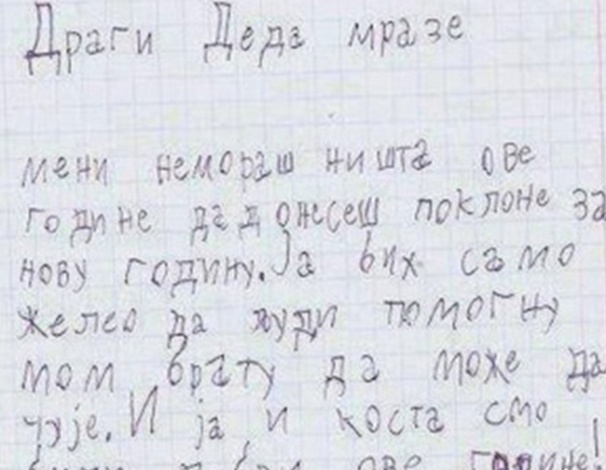 Драги Деда мразе
мени немораш ништа ове
године да донесеш поклоне за
нову годину. Ја бих само
желео да људи помогну
мом брату да може да
чује. И ја и коста смо
ове године!